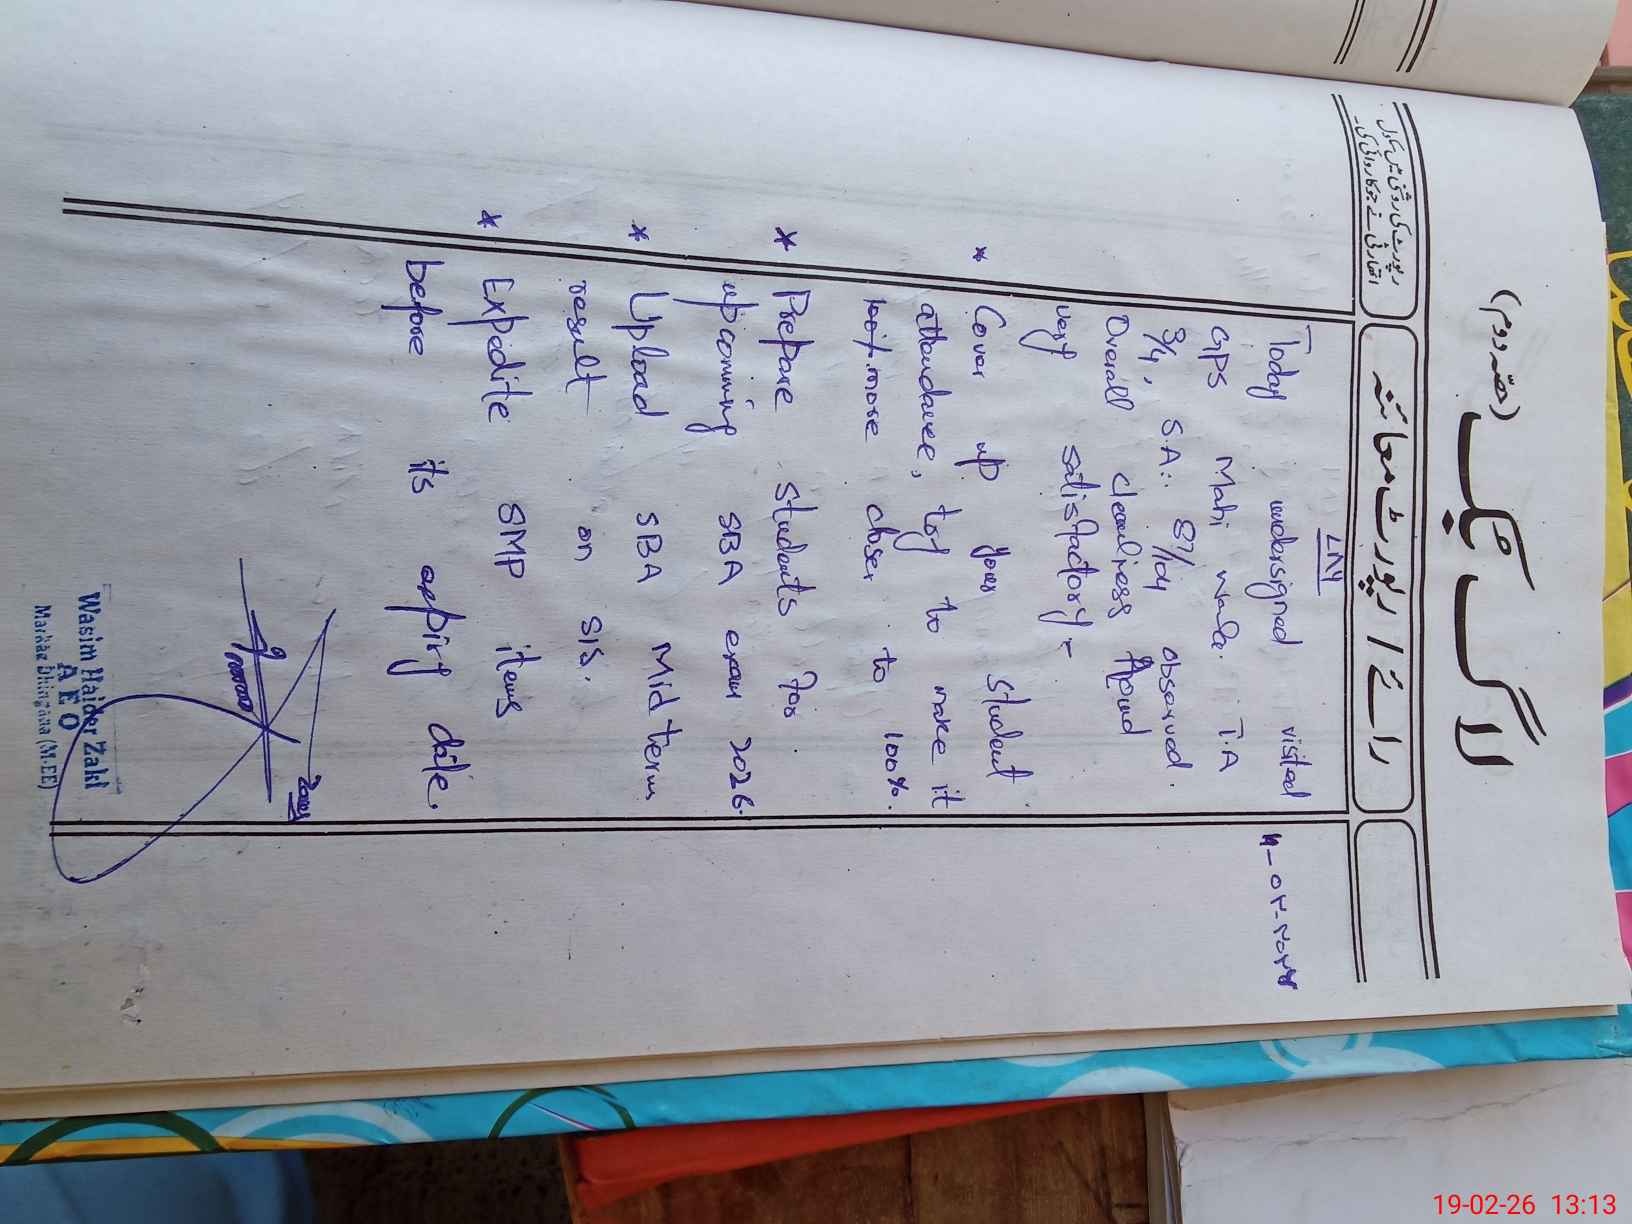 لاگ بک
(حصہ دوم)
رپورٹ کی روشنی میں سکول
اتھارٹی نے جو کاروائی کی۔
رائے / رپورٹ معائنہ
Today undersigned visited
GPS Mahi wala. T.A
3/4, S.A: 87/104 observed.
Overall cleanliness found
very satisfactory -
* Cover up your student
attendance, try to make it
more closer to 100%.
* Prepare students for
upcoming SBA exam 2026.
* Upload SBA Mid term
result on SIS.
* Expedite SMP items
before its expiry date.
Wasim Haider Zaki
A E O
Markaz Dhingana (M.EE)
19-02-26 13:13